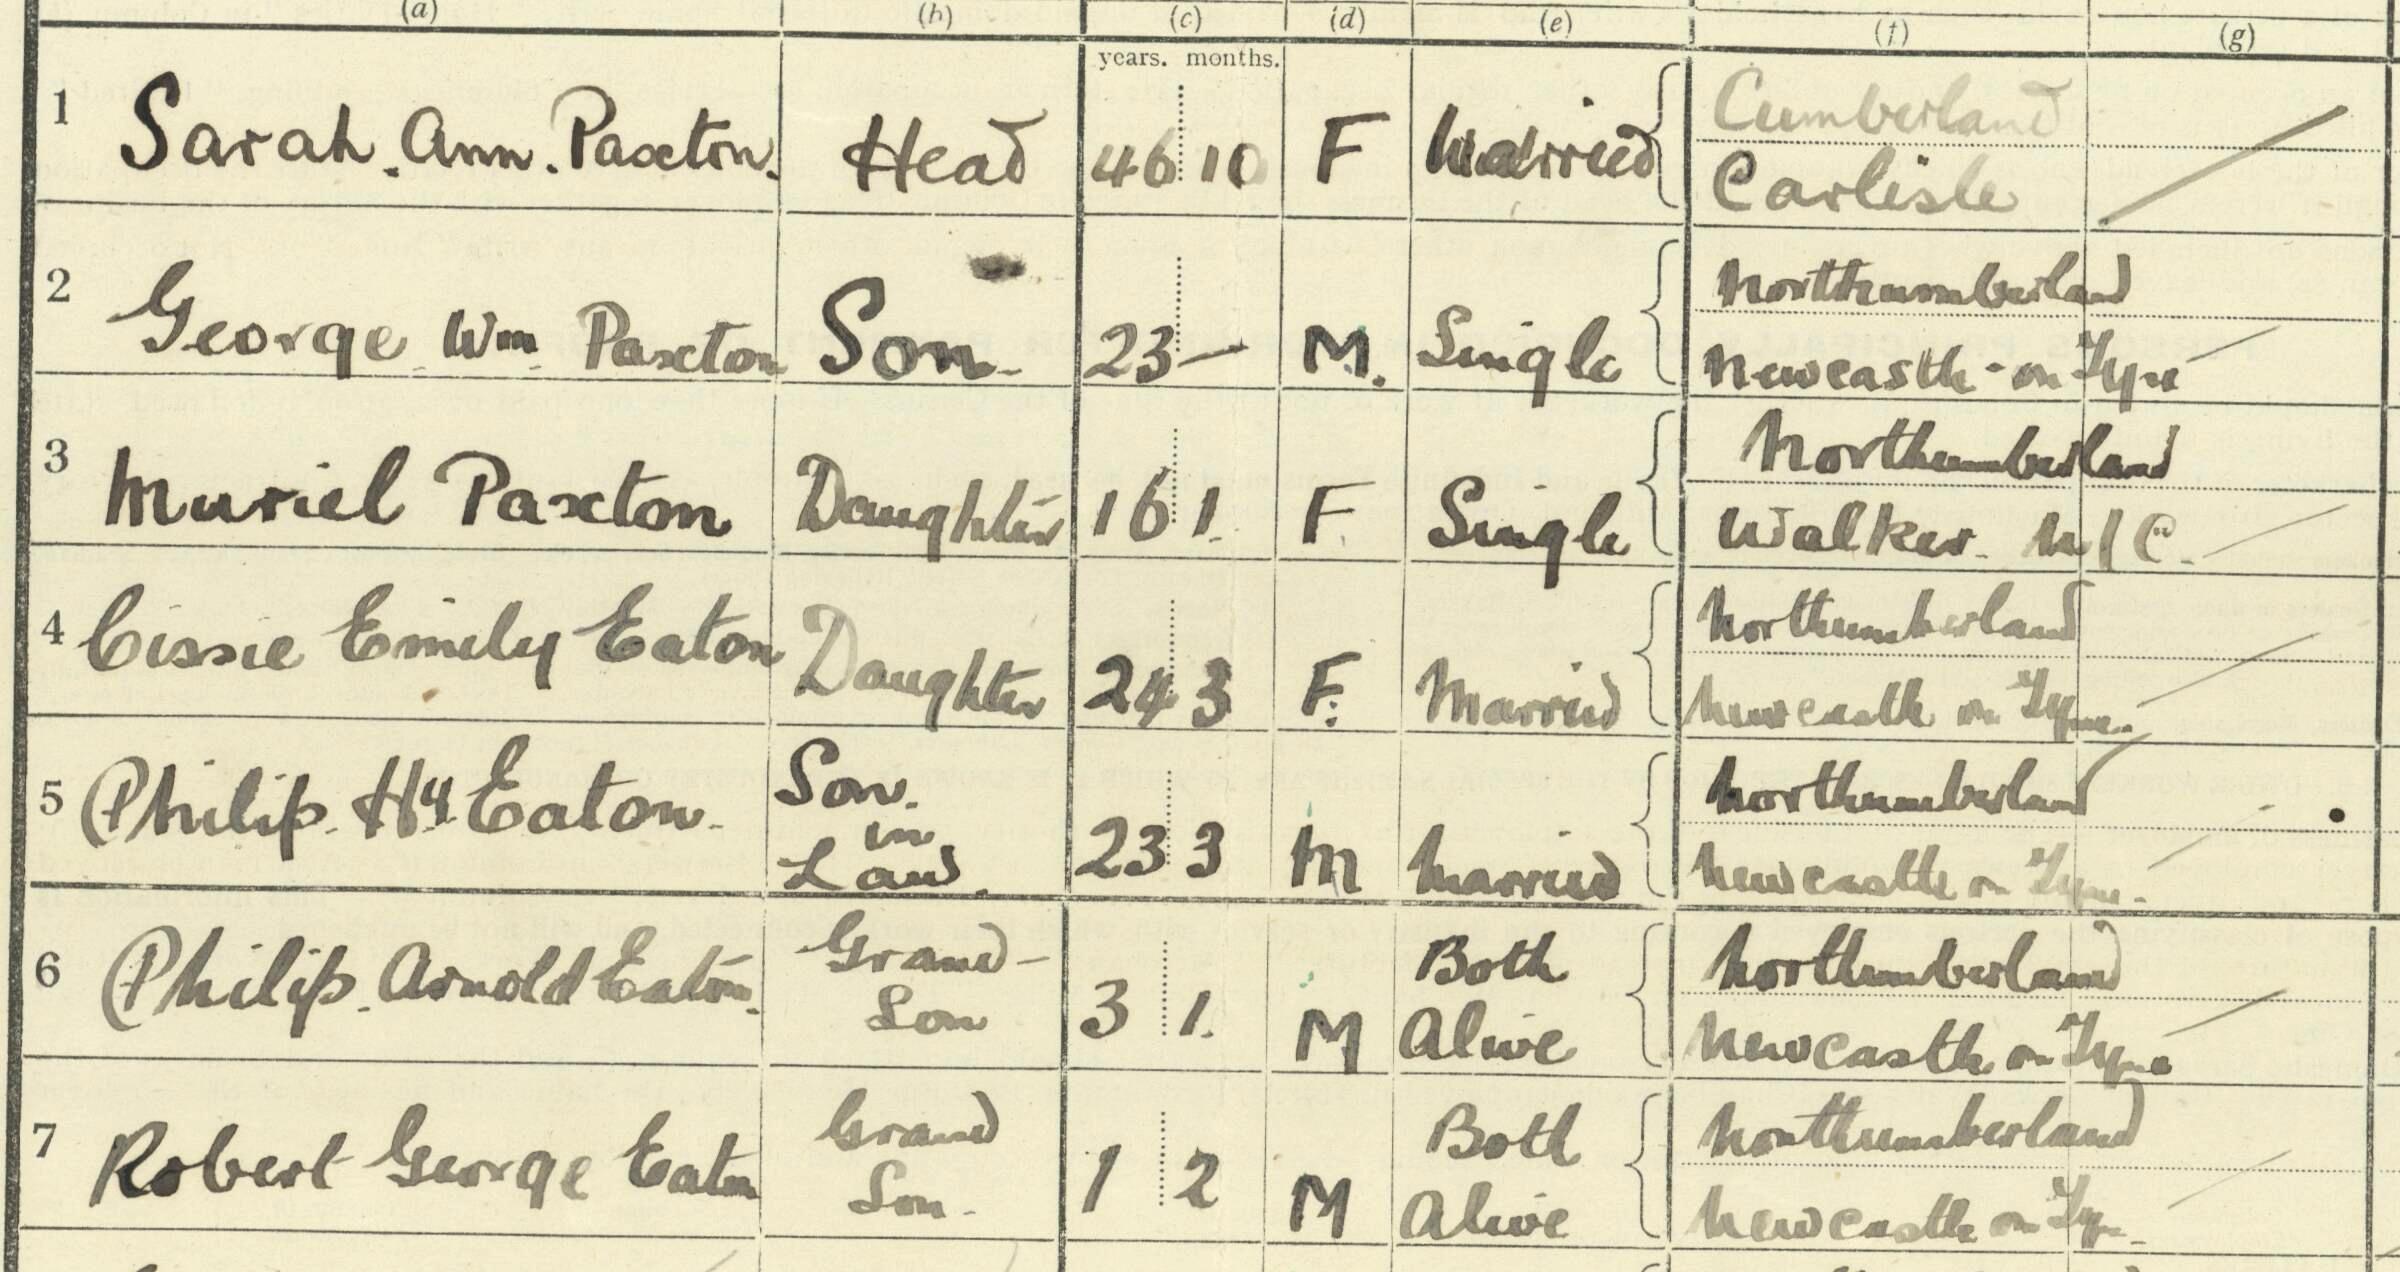 (a) (b) (c) (d) (e) (f) (g)
years. months.
1 Sarah Ann Paxton. Head 46 10 F Married Cumberland
Carlisle
2 George Wm Paxton Son. 23 — M. Single Northumberland
Newcastle-on Tyne
3 Muriel Paxton Daughter 16 1. F. Single Northumberland
Walker. N/C.
4 Cissie Emily Eaton Daughter 24 3 F. Married Northumberland
Newcastle on Tyne.
5 Philip. Hy Eaton. Son. in Law. 23 3 M Married Northumberland
Newcastle on Tyne.
6 Philip. Arnold Eaton. Grand-Son 3 1. M Both Alive Northumberland
Newcastle on Tyne
7 Robert George Eaton Grand Son. 1 2 M Both Alive Northumberland
Newcastle on Tyne.